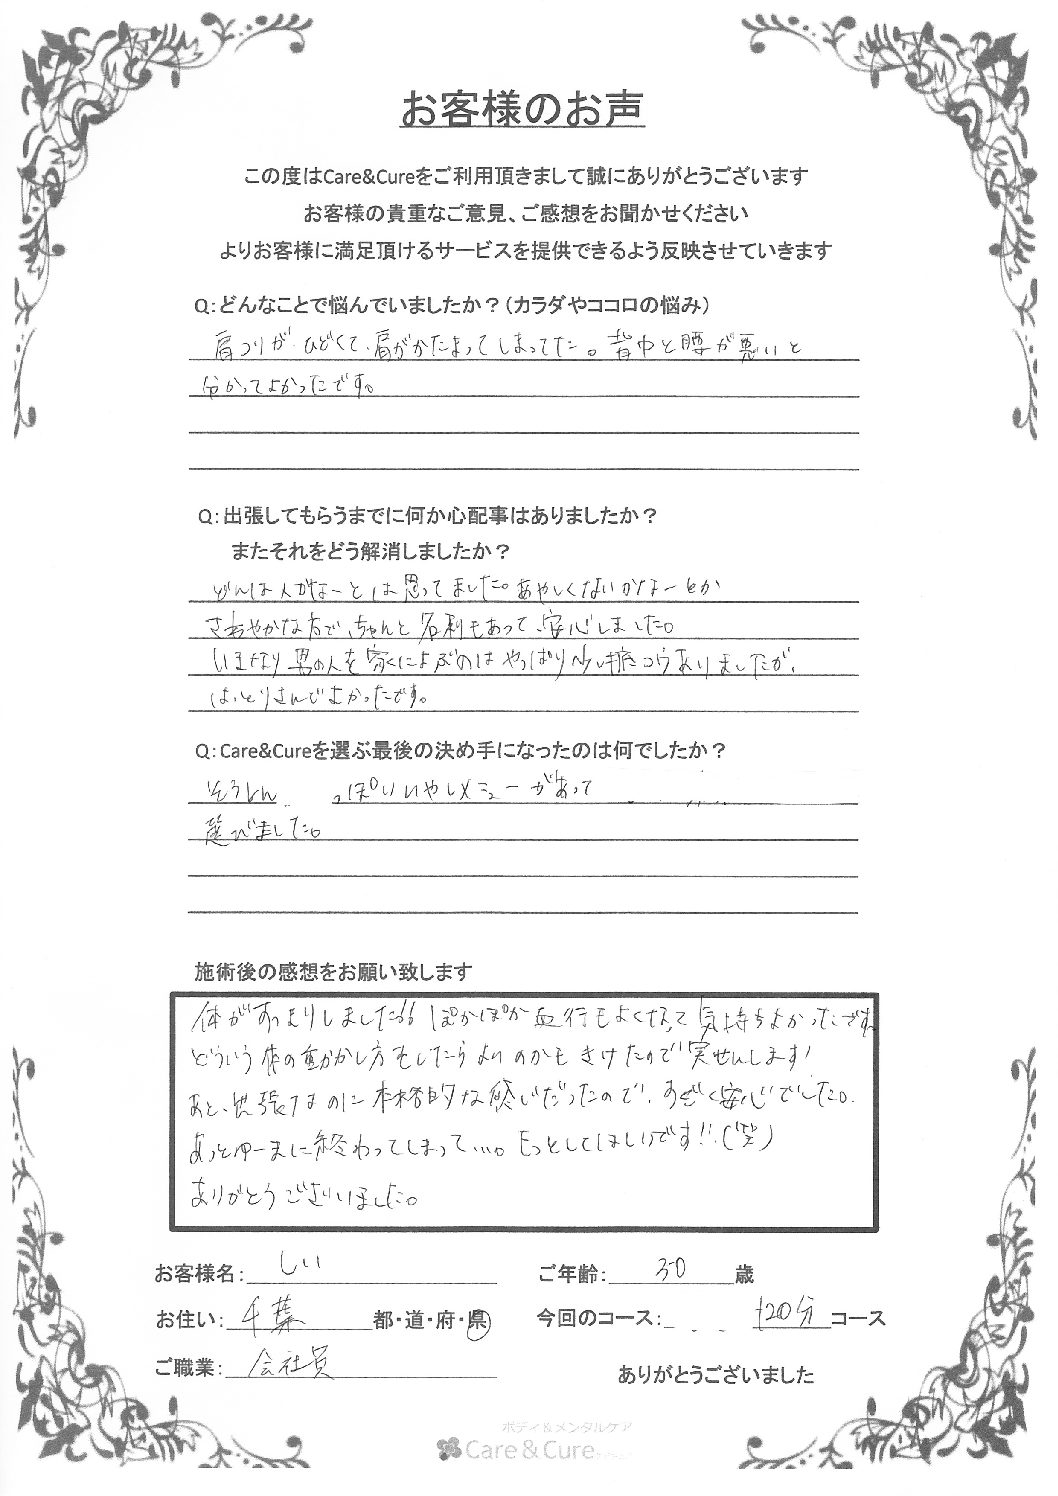 お客様のお声
この度はCare&Cureをご利用頂きまして誠にありがとうございます
お客様の貴重なご意見、ご感想をお聞かせください
よりお客様に満足頂けるサービスを提供できるよう反映させていきます
Q:どんなことで悩んでいましたか?(カラダやココロの悩み)
肩コリがひどくて、肩がかたまってしまってた。背中と腰が悪いと
分かってよかったです。
Q:出張してもらうまでに何か心配事はありましたか?
またそれをどう解消しましたか?
どんな人かなーとは思ってました。あやしくないかなーとか
さわやかな方で、ちゃんと名刺もあって、安心しました。
いきなり男の人を家によぶのはやっぱり少し抵コウありましたが、
はっとりさんでよかったです。
Q:Care&Cureを選ぶ最後の決め手になったのは何でしたか?
そうしん っぽいいやしメニューがあって
選びました。
施術後の感想をお願い致します
体がすっきりしました!! ぽかぽか血行もよくなって気持ちよかったです
どういう体の動かし方をしたらよいのかもきけたので実せんします!
あと、出張なのに本格的な感じだったので、すごく安心でした。
あっとゆーまに終わってしまって…。もっとしてほしいです!!(笑)
ありがとうございました。
お客様名: しい ご年齢: 30 歳
お住い: 千葉 都・道・府・県 今回のコース: 120分 コース
ご職業: 会社員 ありがとうございました
ボディ&メンタルケア
Care&Cure